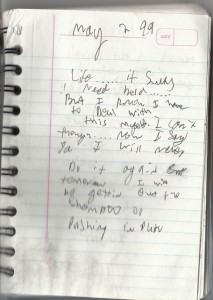 may 2 99
Life .... it Sucks
I need help .....
But I know I have
to Deal with
this myself I can't
things... now I say
I will never
Do it again
tomorrow I will
be getting out the
Shampoo or
Pushing in